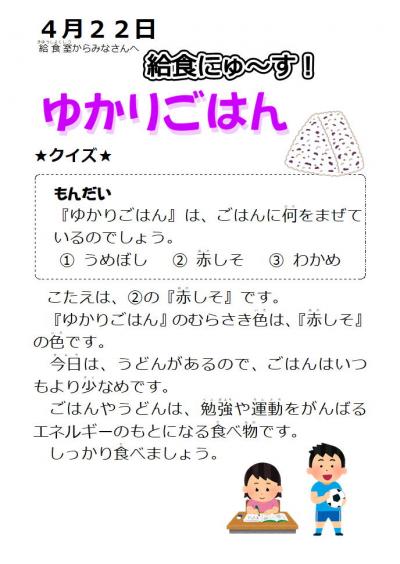 ４月２２日
給食室からみなさんへ
給食にゅ～す！
ゆかりごはん
★クイズ★
もんだい
『ゆかりごはん』は、ごはんに何をまぜて
いるのでしょう。
① うめぼし　② 赤しそ　③ わかめ
こたえは、②の『赤しそ』です。
『ゆかりごはん』のむらさき色は、『赤しそ』
の色です。
今日は、うどんがあるので、ごはんはいつ
もより少なめです。
ごはんやうどんは、勉強や運動をがんばる
エネルギーのもとになる食べ物です。
しっかり食べましょう。